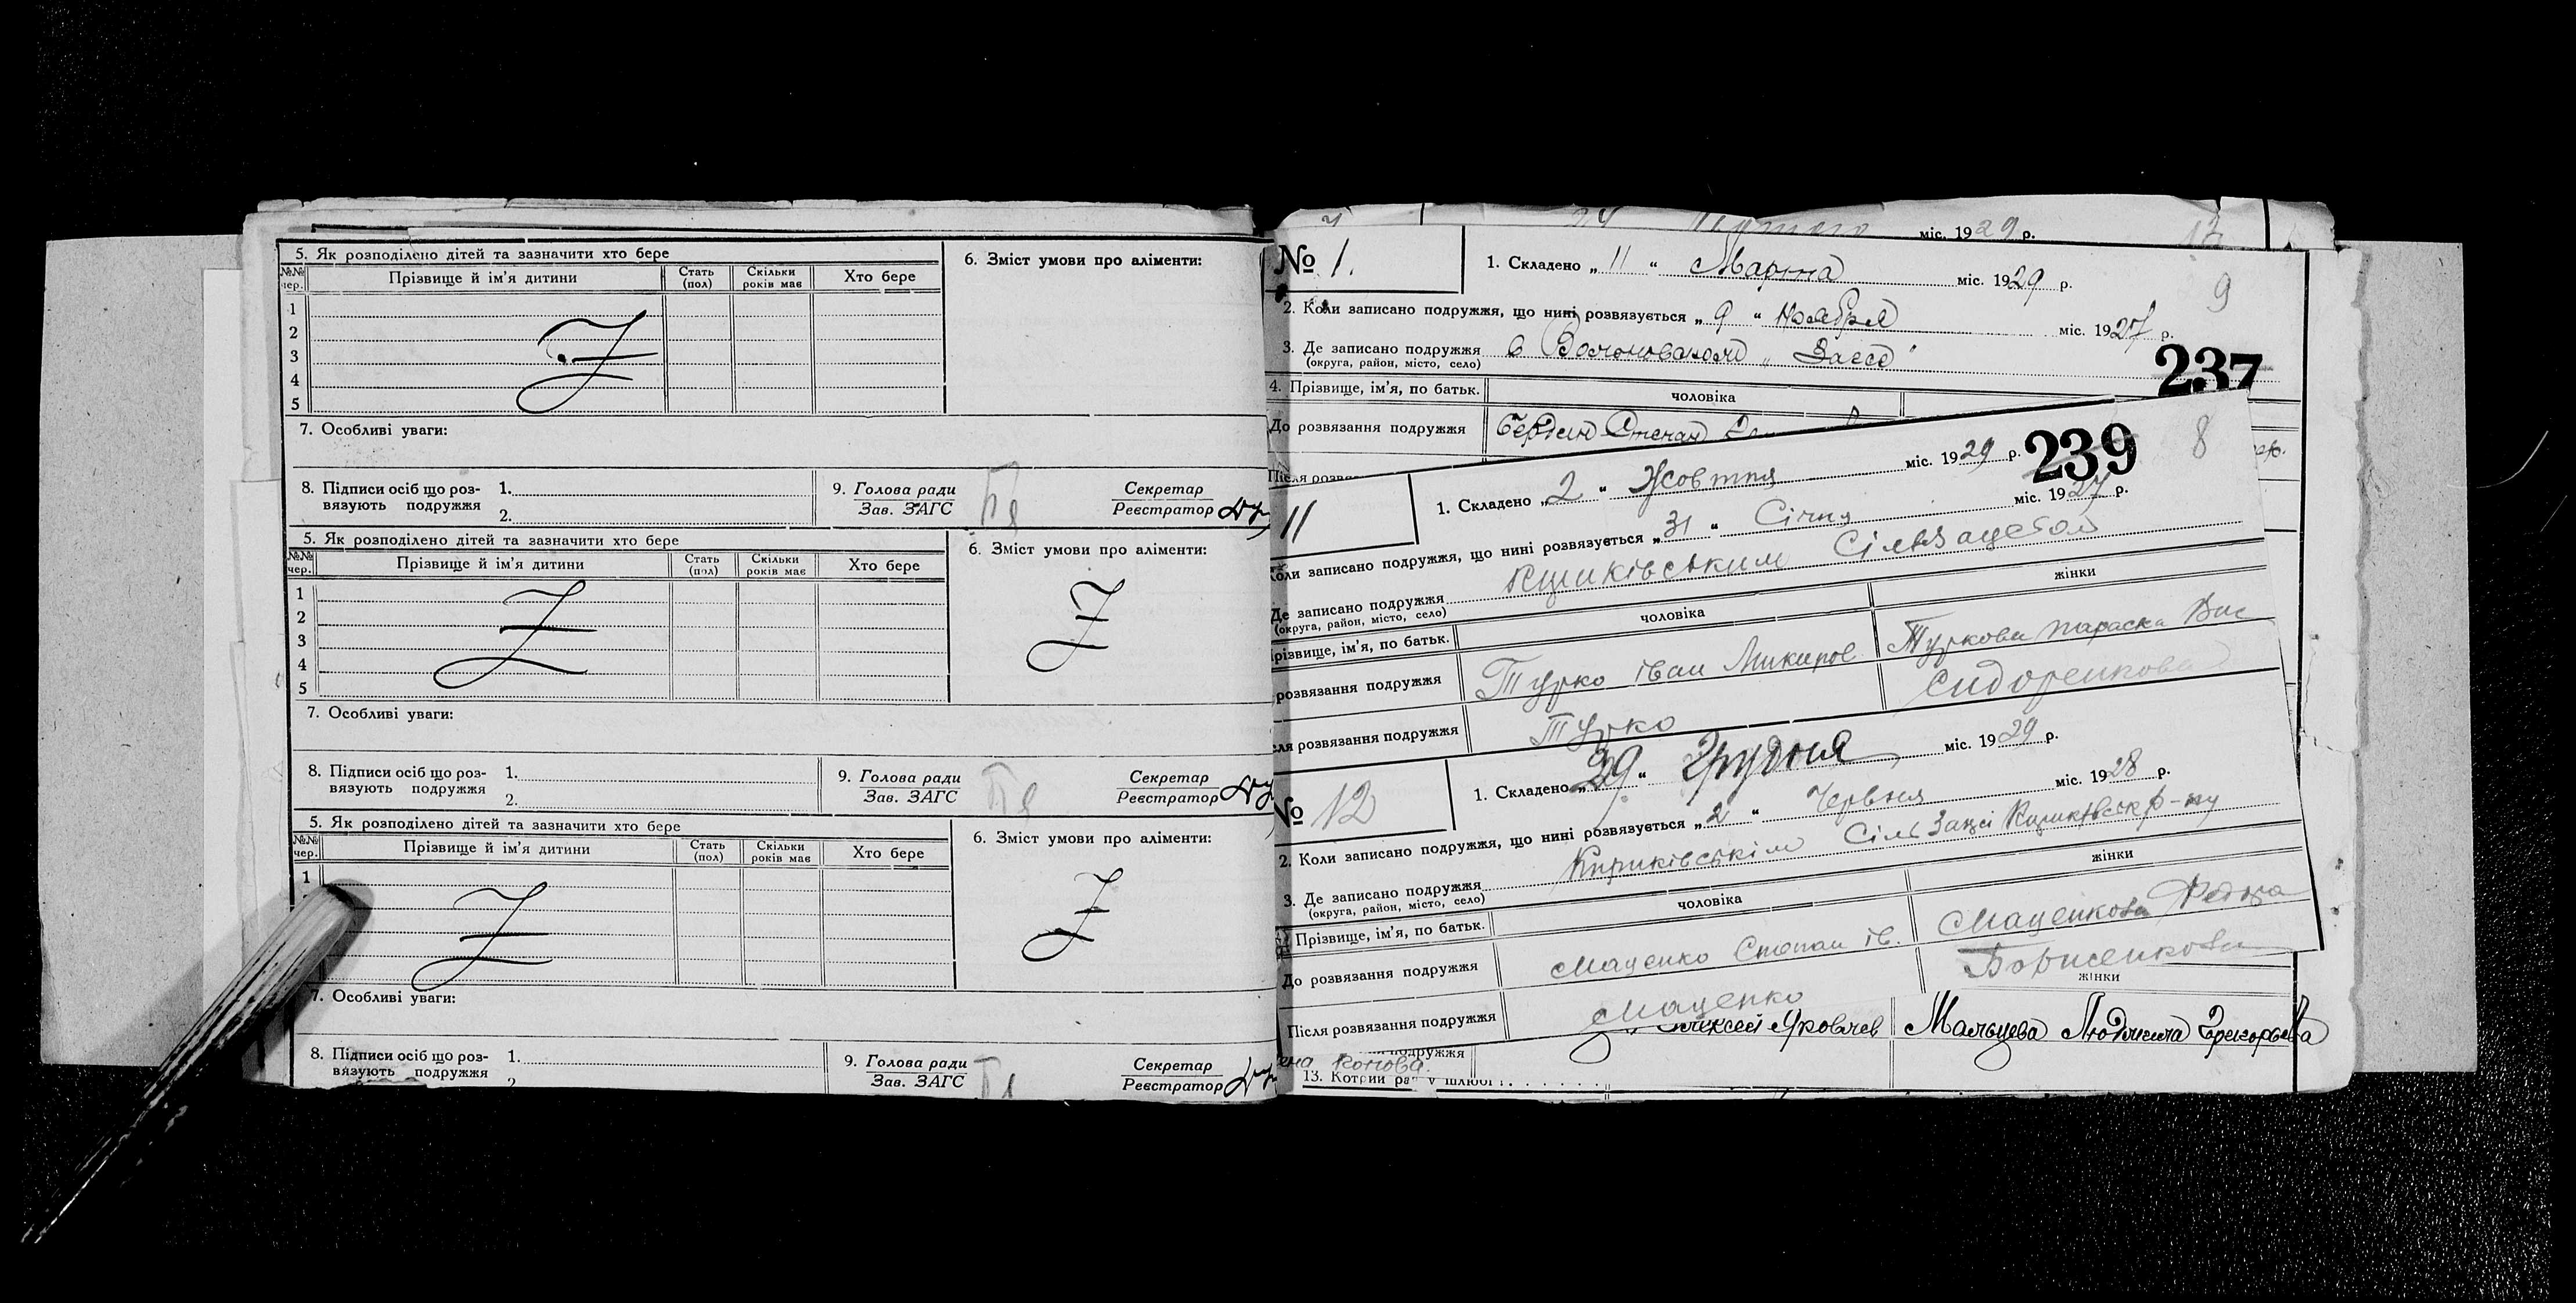 5. Як розподілено дітей та зазначити хто бере
6. Зміст умови про аліменти:
№№ чер. Прізвище й ім'я дитини Стать (пол) Скільки років має Хто бере
1
2
3
4
5
7. Особливі уваги:
8. Підписи осіб що роз- 1.
вязують подружжя 2.
9. Голова ради Секретар
Зав. ЗАГС Реєстратор
5. Як розподілено дітей та зазначити хто бере
6. Зміст умови про аліменти:
№№ чер. Прізвище й ім'я дитини Стать (пол) Скільки років має Хто бере
1
2
3
4
5
7. Особливі уваги:
8. Підписи осіб що роз- 1.
вязують подружжя 2.
9. Голова ради Секретар
Зав. ЗАГС Реєстратор
5. Як розподілено дітей та зазначити хто бере
6. Зміст умови про аліменти:
№№ чер. Прізвище й ім'я дитини Стать (пол) Скільки років має Хто бере
1
7. Особливі уваги:
8. Підписи осіб що роз- 1.
вязують подружжя 2.
9. Голова ради Секретар
Зав. ЗАГС Реєстратор
24 Лютого міс. 1929 р.
№ 1. 1. Складено „11“ Марта міс. 1929 р.
9
2. Коли записано подружжя, що нині розвязується „9“ Ноября міс. 1927 р.
3. Де записано подружжя в
(округа, район, місто, село)
237
4. Прізвище, ім'я, по батьк. чоловіка
До розвязання подружжя Степан
Після розвя
239 8
11 1. Складено „2“ Жовтня міс. 1929 р.
Коли записано подружжя, що нині розвязується „31“ Січня міс. 1927 р.
Де записано подружжя
(округа, район, місто, село)
різвище, ім'я, по батьк. чоловіка жінки
розвязання подружжя Турко Іван Микитов Туркова Параска Вас
ля розвязання подружжя Турко Сидоренкова
№ 12 1. Складено „29“ Грудня міс. 1929 р.
2. Коли записано подружжя, що нині розвязується „2“ Червня міс. 1928 р.
3. Де записано подружжя Кириківськім Сіль Загсі Кириківськ р-ну
(округа, район, місто, село)
Прізвище, ім'я, по батьк. чоловіка жінки
До розвязання подружжя Маценко Степан Ів. Маценкова
Після розвязання подружжя Маценко Борисенкова
жінки
Алексей Яковлев Мальцева Людмила Грегорьева
подружжя
13. Котрий раз у шлюбі